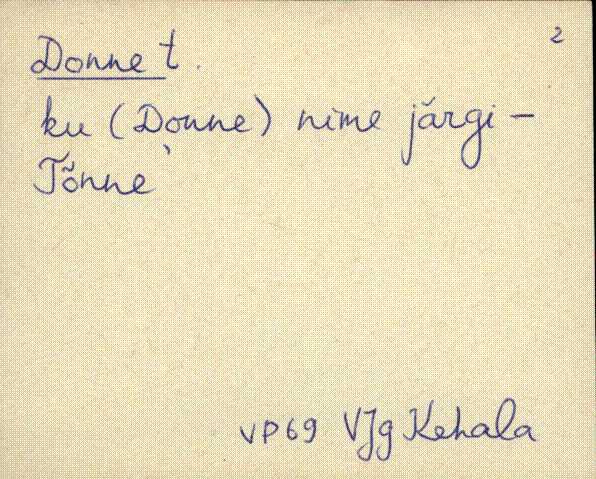 2
Donne t.
ku (Donne) nime järgi –
Tõnne
VP69 VJg Kehala